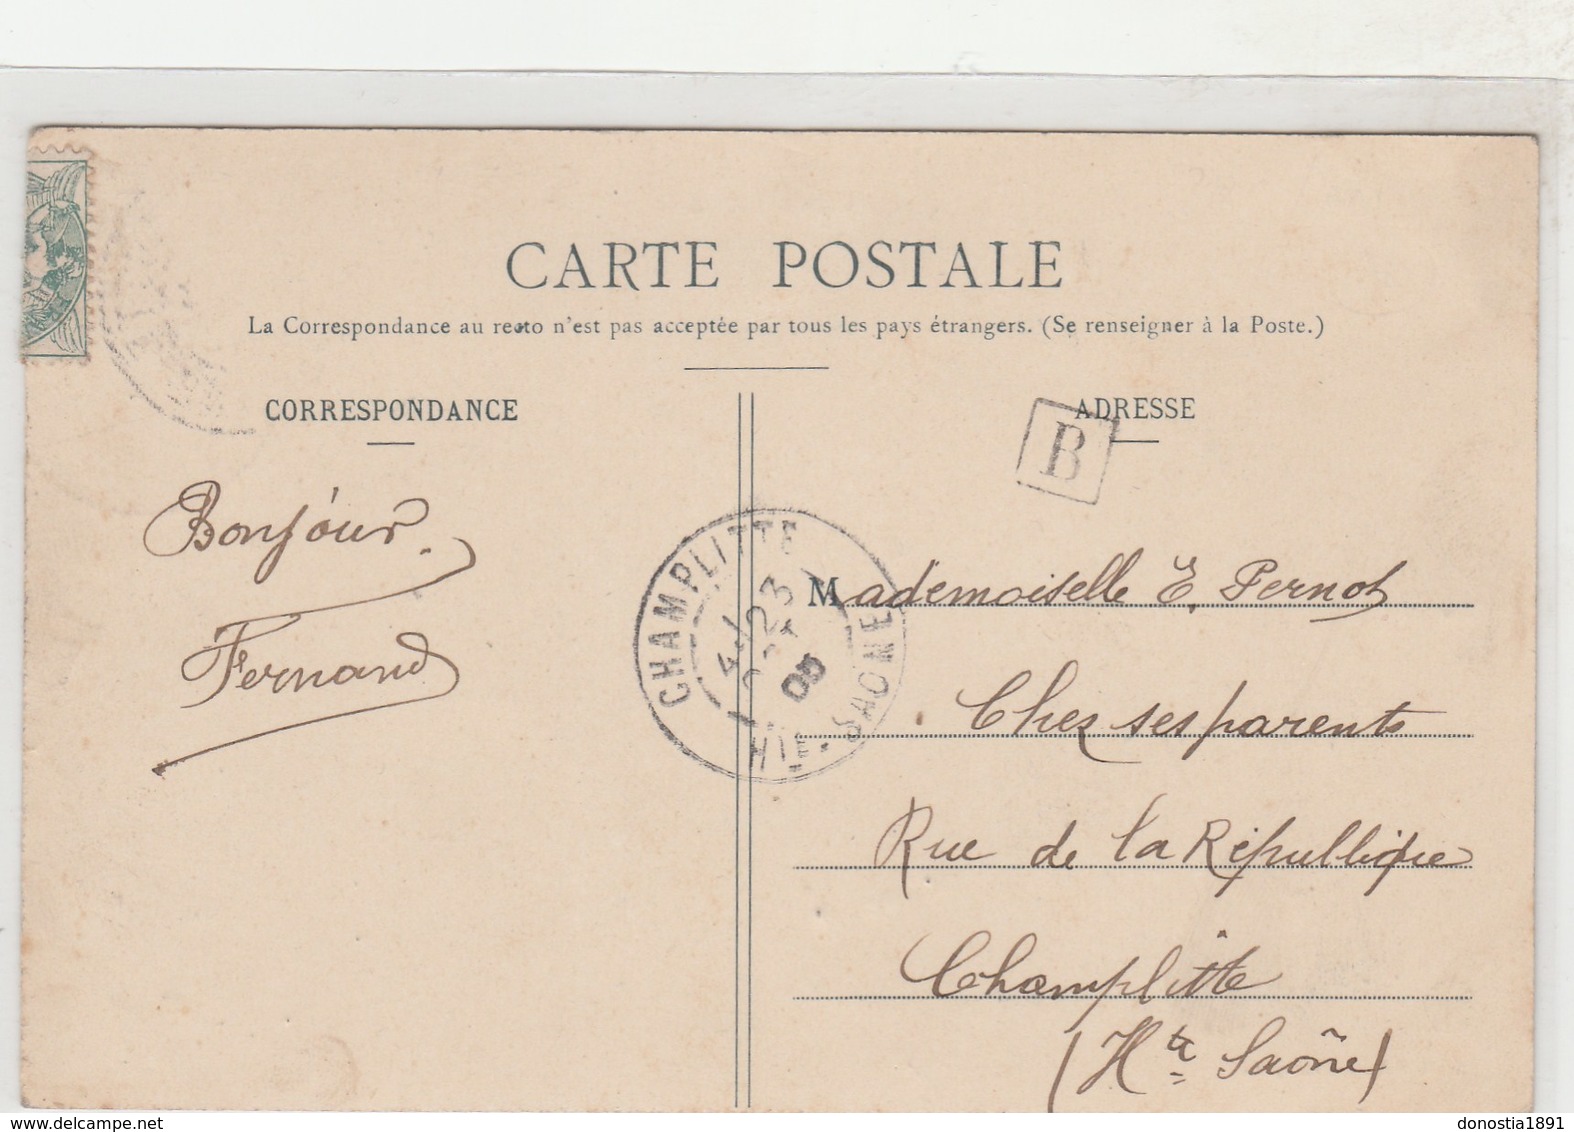 CARTE POSTALE
La Correspondance au recto n'est pas acceptée par tous les pays étrangers. (Se renseigner à la Poste.)
CORRESPONDANCE
Bonjour.
Fernand
CHAMPLITTE
23
05
HTE. SAONE
ADRESSE
B
Mademoiselle E. Pernot
Chez ses parents
Rue de la République
Champlitte
(Hte Saône)
delcampe.net
donostia1891